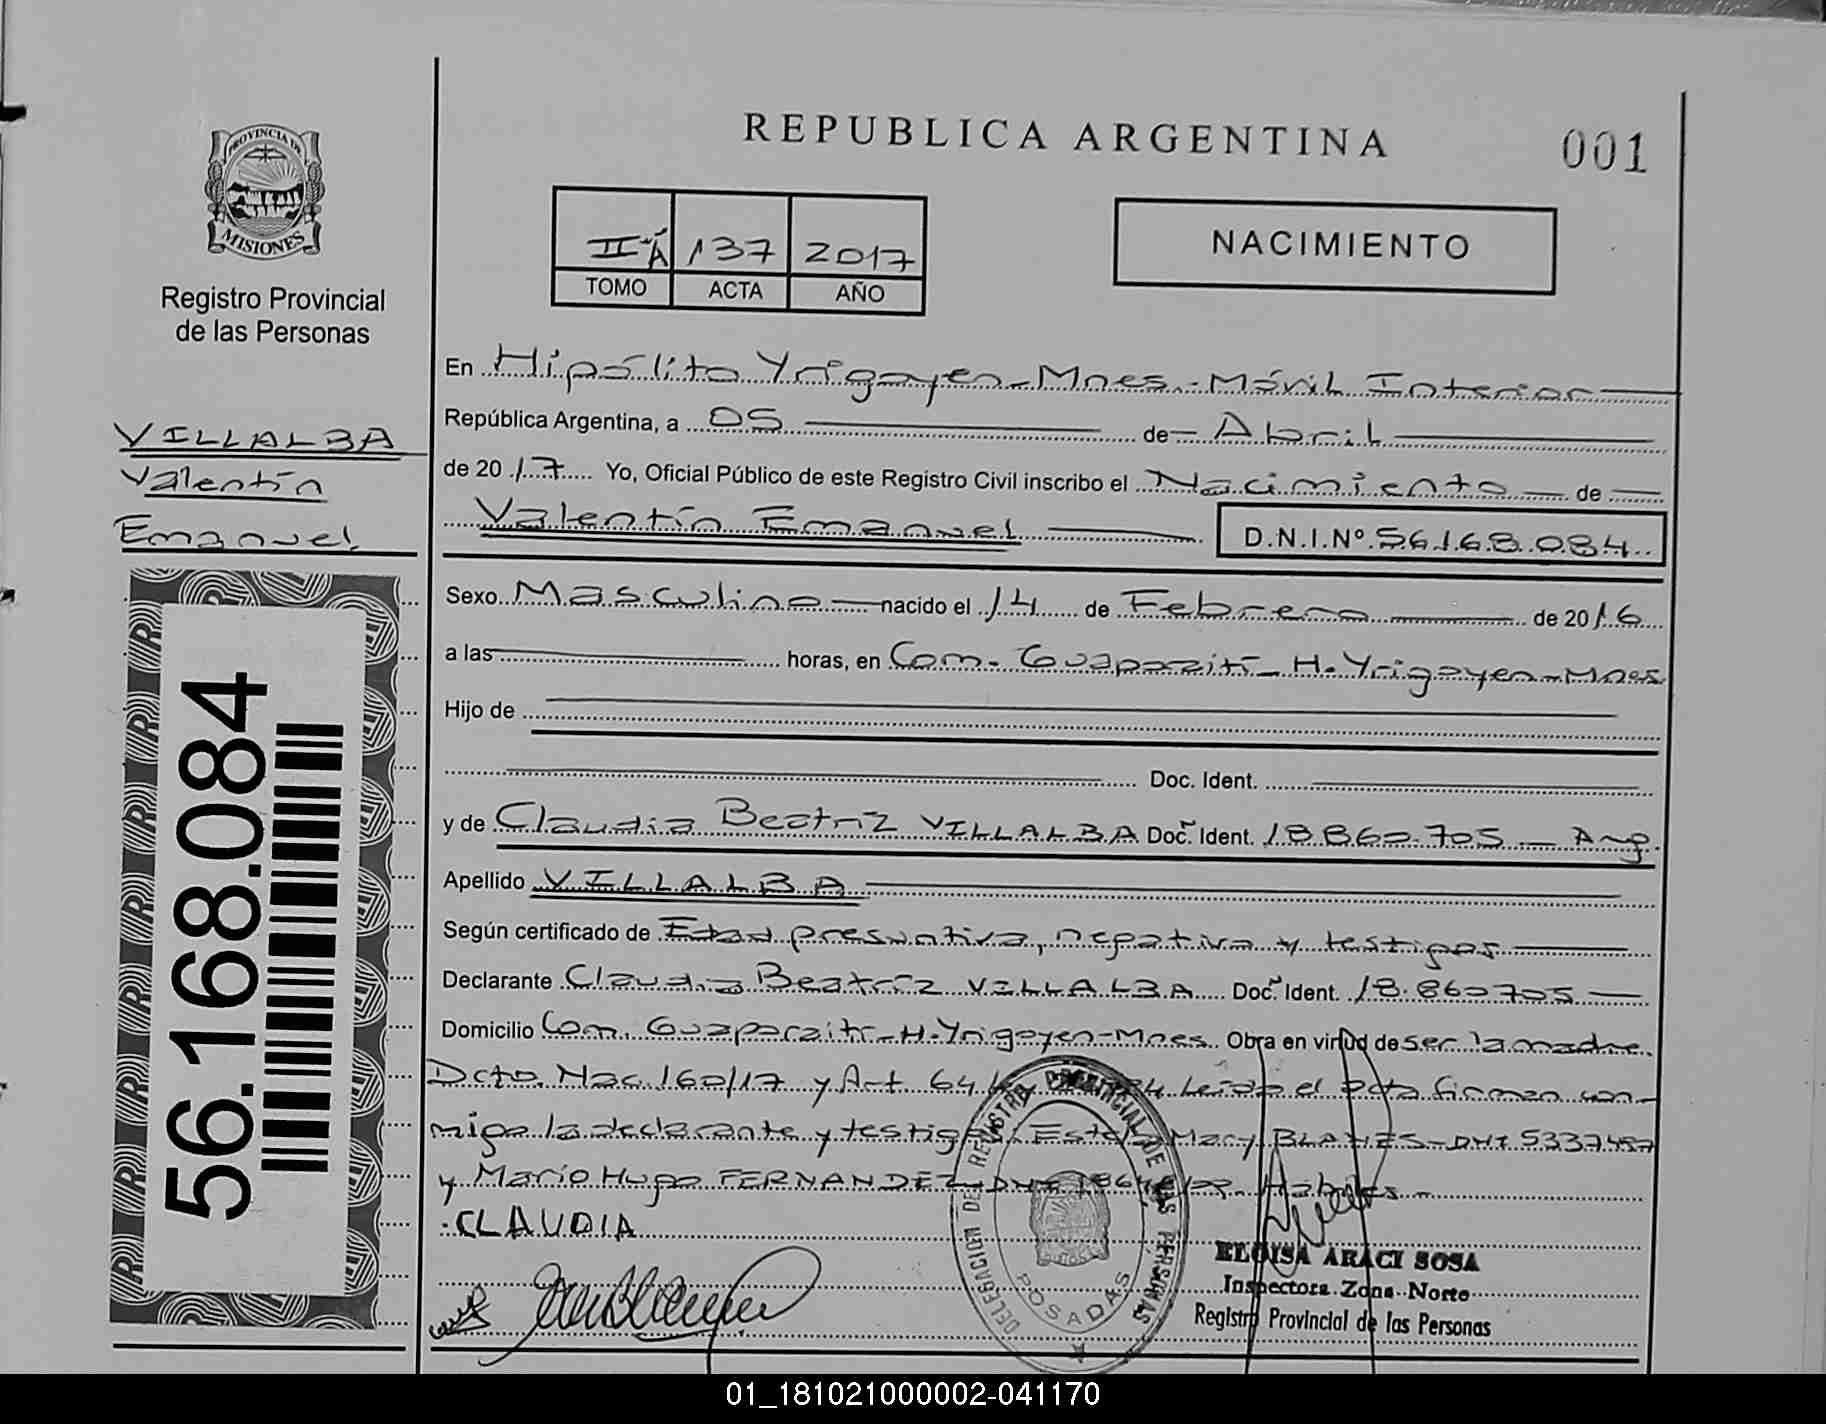 REPUBLICA ARGENTINA
001
PROVINCIA DE
MISIONES
Registro Provincial
de las Personas
II A 137 2017
TOMO ACTA AÑO
NACIMIENTO
VILLALBA
Valentín
Emanuel
56.168.084
En Hipólito Yrigoyen - Mnes - Móvil Interior
República Argentina, a 05 de Abril
de 2017 Yo, Oficial Público de este Registro Civil inscribo el Nacimiento de
Valentín Emanuel D.N.I.Nº 56.168.084
Sexo Masculino nacido el 14 de Febrero de 2016
a las horas, en Com. Guaporaití - H. Yrigoyen - Mnes
Hijo de
Doc. Ident.
y de Claudia Beatríz VILLALBA Doc. Ident. 18.860.705 - Arg.
Apellido VILLALBA
Según certificado de Edad presuntiva, negativa y testigos
Declarante Claudia Beatríz VILLALBA Doc. Ident. 18.860705
Domicilio Com. Guaporaití - H. Yrigoyen - Mnes. Obra en virtud de ser la madre.
Dcto. Nac. 160/17 y Art 64 Leída el acta firman con-
migo la declarante y testigos Mary BLANES - DNI 5337457
y Mario Hugo FERNANDEZ - DNI
CLAUDIA
DELEGACION DE REGISTRO PROVINCIAL DE LAS PERSONAS
POSADAS
ELOISA ARACI SOSA
Inspectora Zona Norte
Registro Provincial de las Personas
01_181021000002-041170